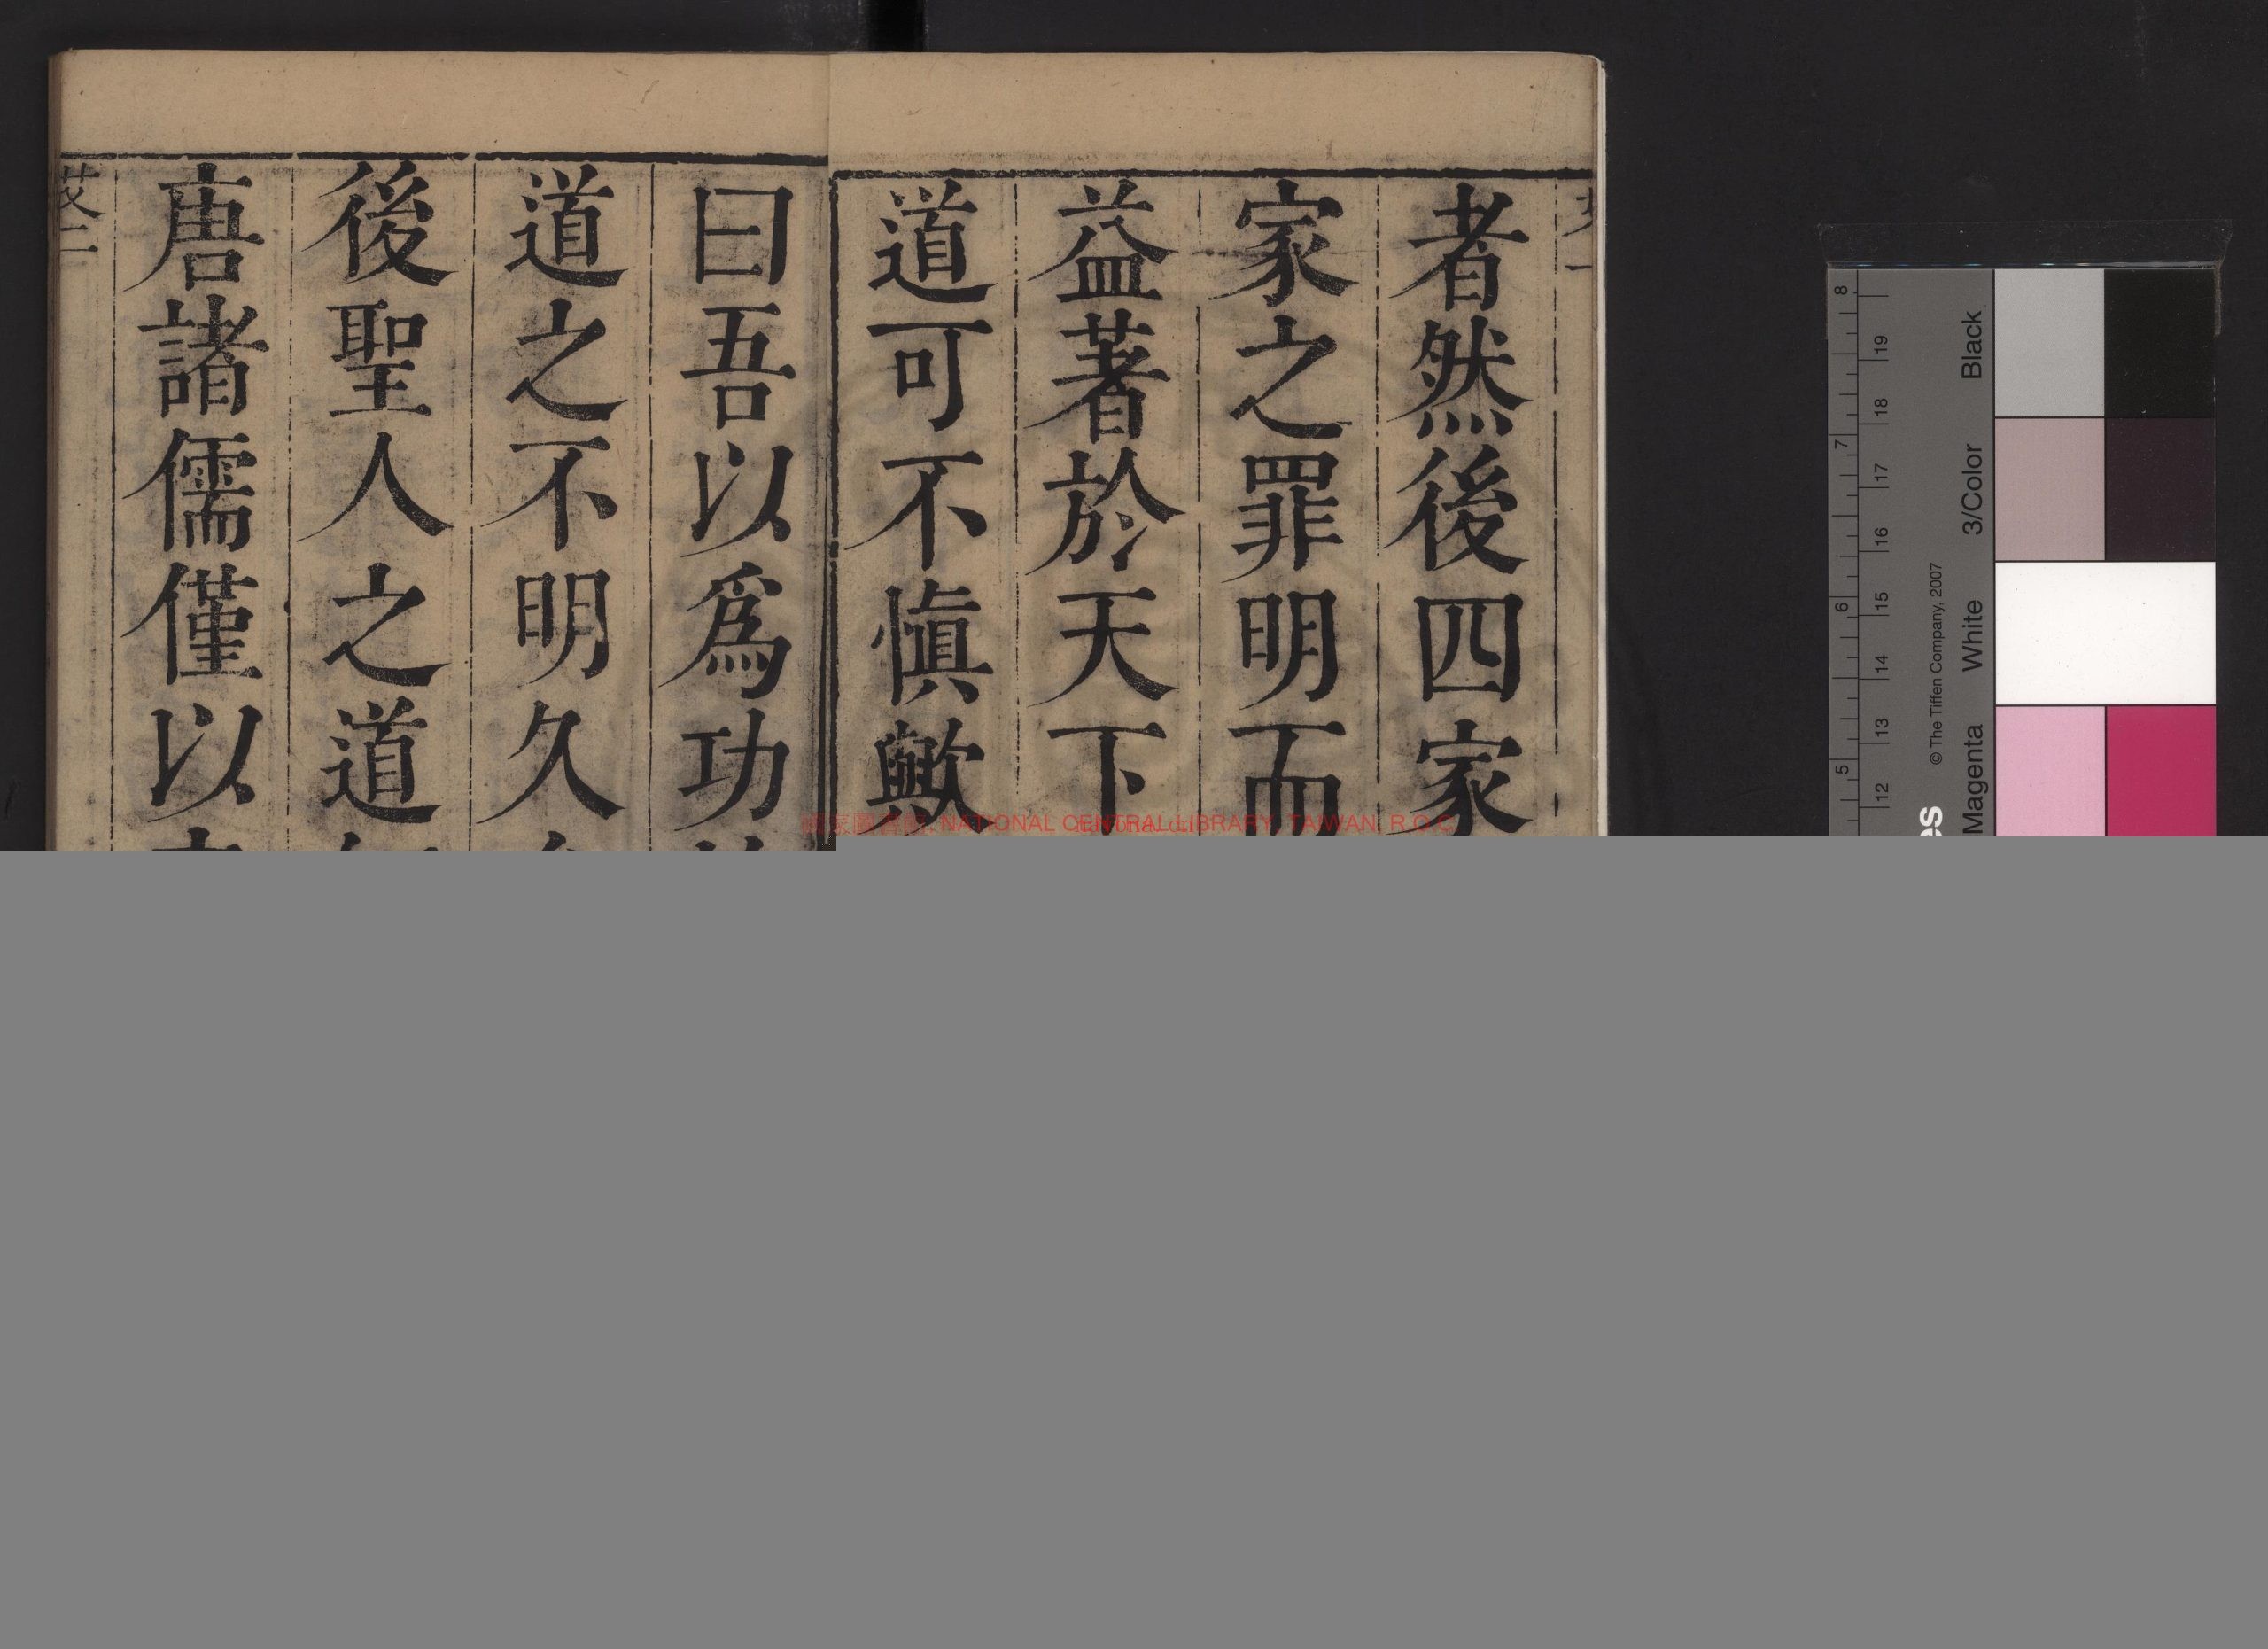 者然後四家
家之罪明而
益著於天下
道可不慎歟
曰吾以爲功
道之不明久
後聖人之道
唐諸儒僅以
NATIONAL CENTRAL LIBRARY, TAIWAN, R.O.C
8 7 6 5
19 18 17 16 15 14 13 12
© The Tiffen Company, 2007
Black
3/Color
White
Magenta